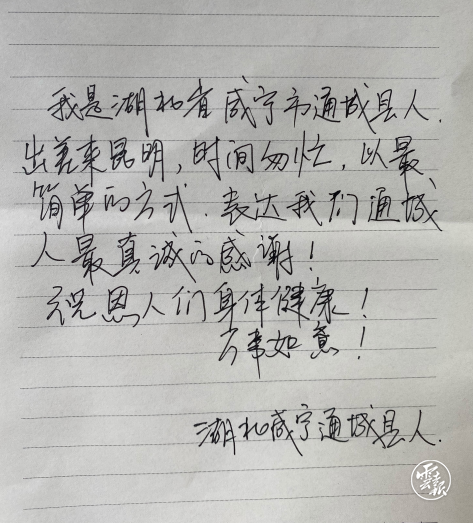 我是湖北省咸宁市通城县人.
出差来昆明,时间匆忙,以最
简单的方式.表达我们通城
人最真诚的感谢!
祝恩人们身体健康!
万事如意!
湖北咸宁通城县人.
云南报